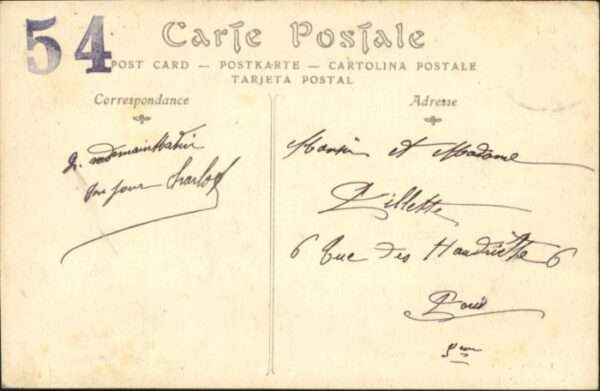 54
Carte Postale
POST CARD — POSTKARTE — CARTOLINA POSTALE
TARJETA POSTAL
Correspondance
Adresse
Bonjour Charlot
et Madame
Villette
6 Rue des Haudriettes 6
Paris
3eme